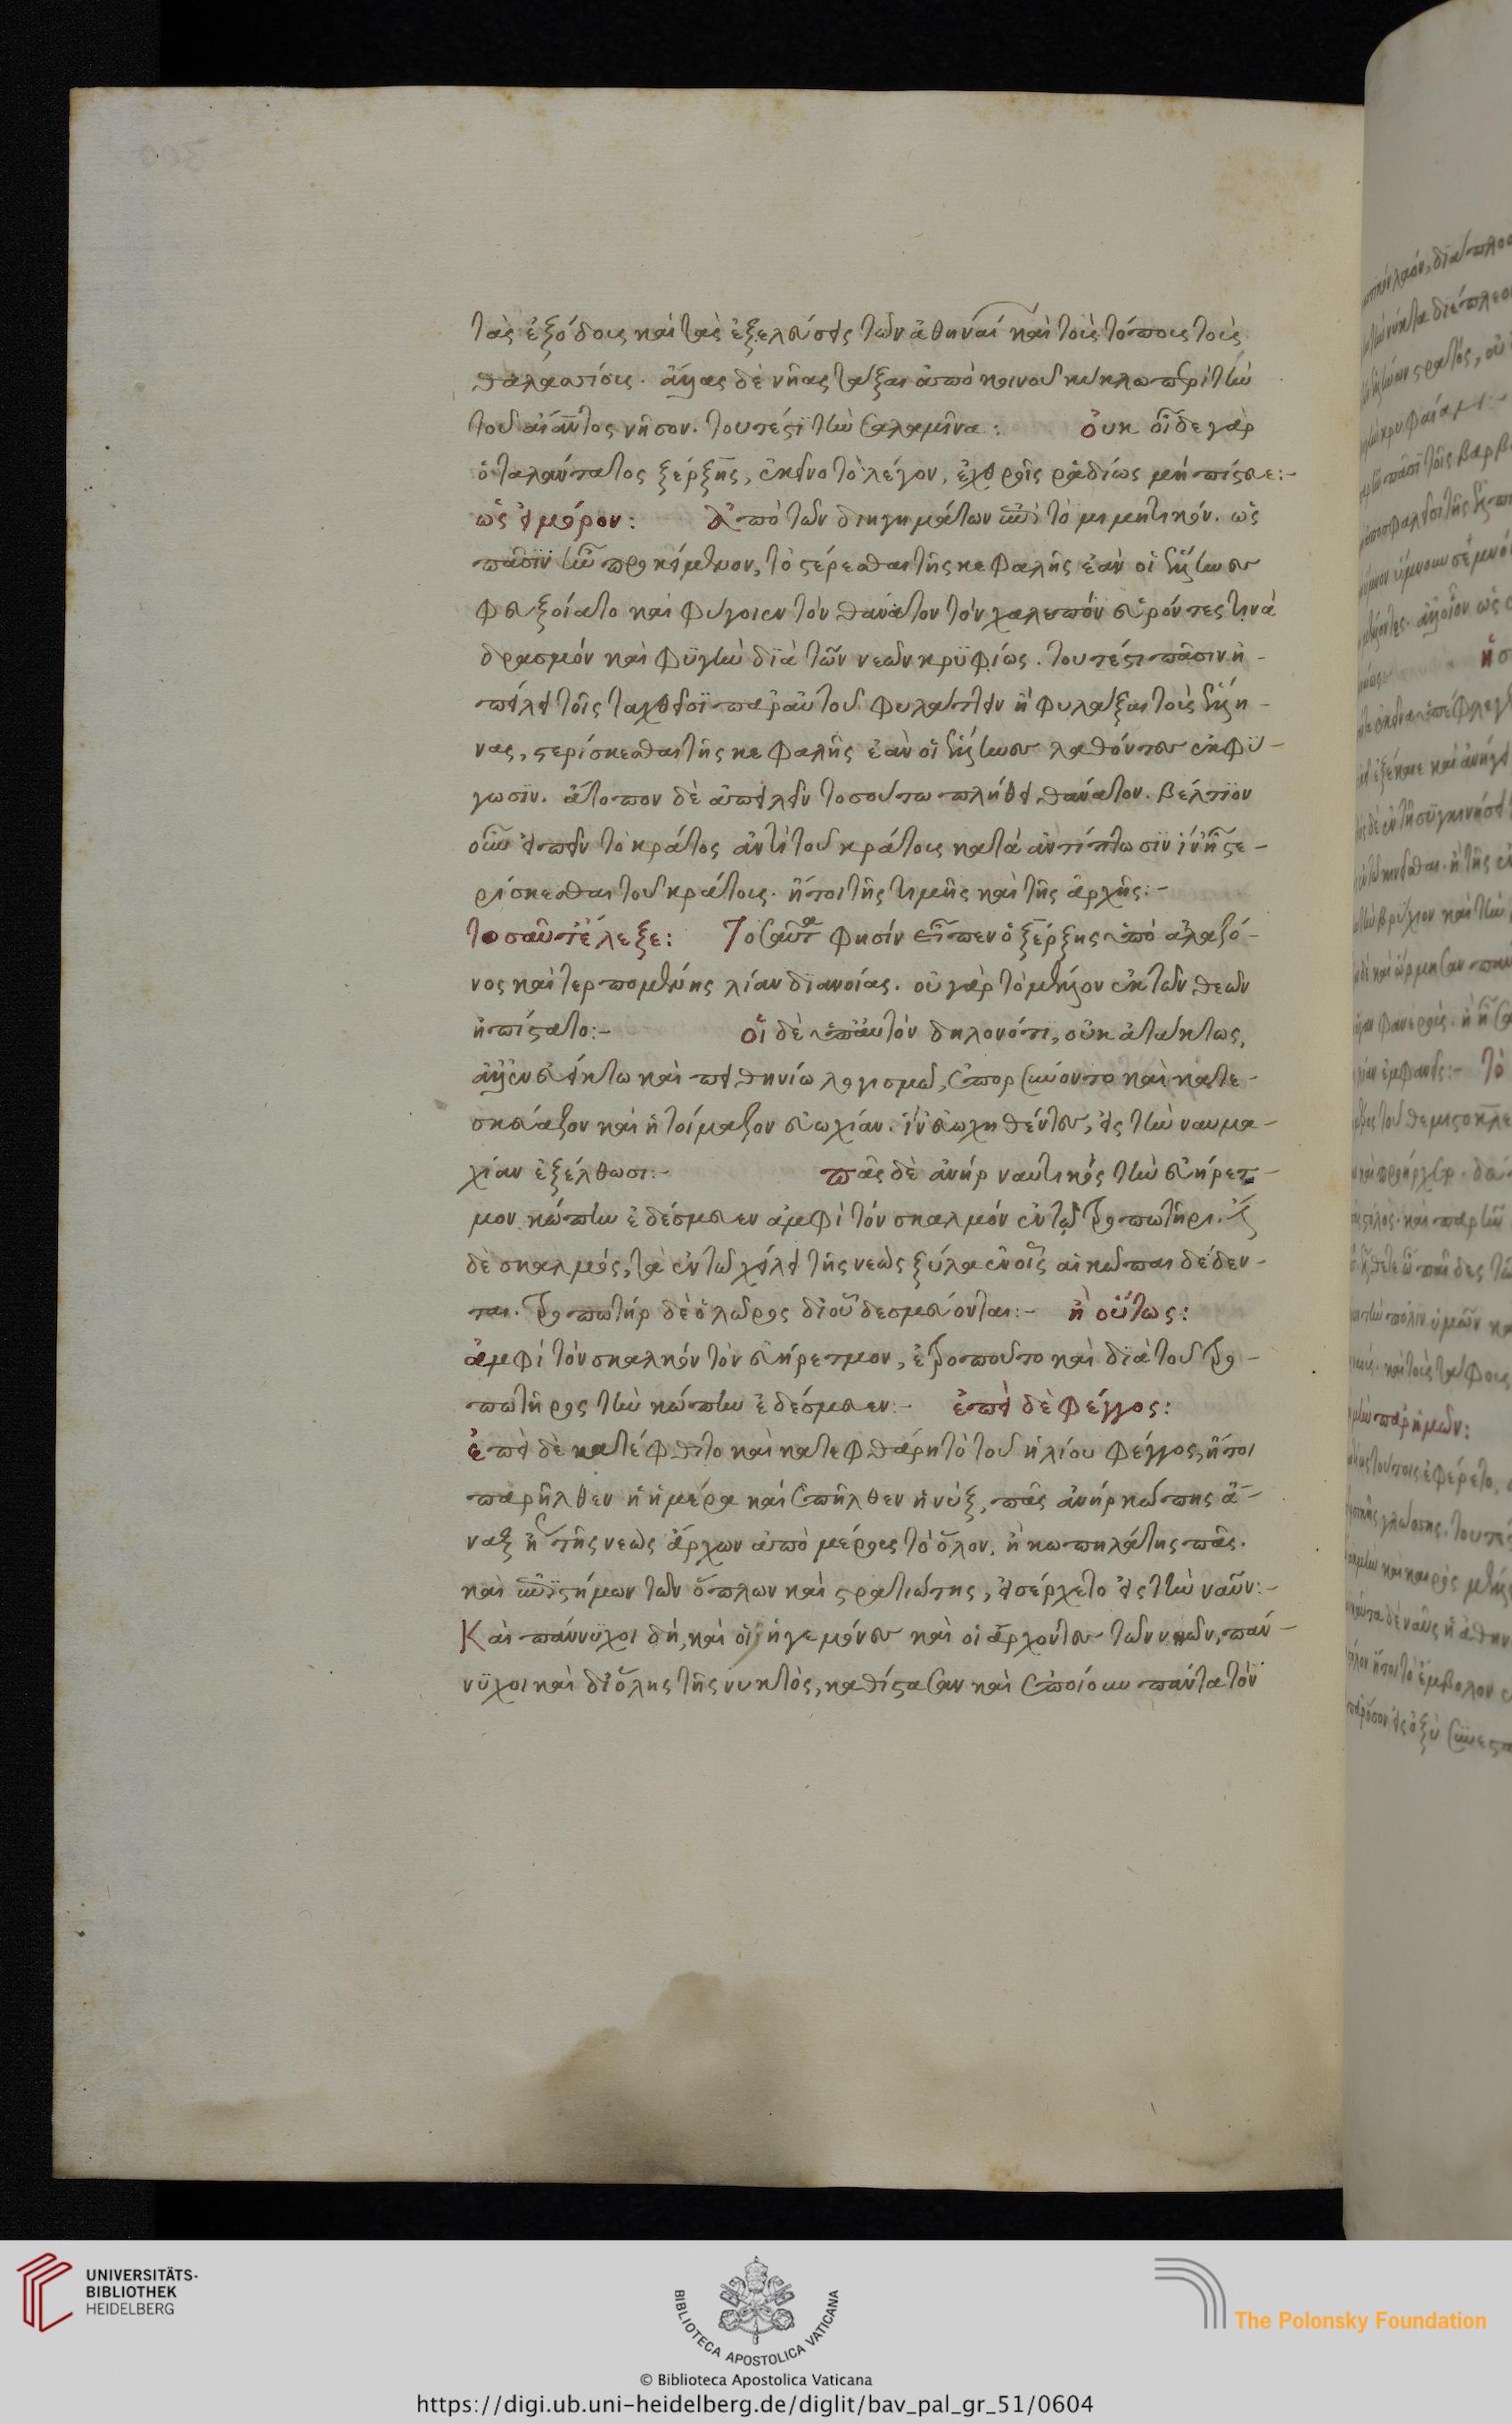 τὰς ἐξόδους καὶ τὰς ἐξελεύσεις τῶν ἀθηναί καὶ τοὺς τόπους τοὺς
θαλασσίους. ἄλλας δὲ νῆας τάξαι ἀπὸ κοινοῦ κύκλω περὶ τὴν
τοῦ αἴαντος νῆσον. τουτέστι τὴν σαλαμῖνα: οὐκ οἶδε γὰρ
ὁ ταλάντατος ξέρξης, ἐκεῖνο τὸ λέγον, ἐχθροῖς ῥαδίως μὴ πίστευε:-
ὡς εἰ μόρον: Ἀπὸ τῶν διηγημάτων ἐπὶ τὸ μιμητικόν. ὡς
πᾶσιν ἦν προκείμενον, τὸ στέρεσθαι τῆς κεφαλῆς ἐὰν οἱ ἕλληνες
φευξοίατο καὶ φύγοιεν τὸν θάνατον τὸν χαλεπὸν εὑρόντες τινὰ
δρασμὸν καὶ φυγὴν διὰ τῶν νεῶν κρυφίως. τουτέστι πᾶσιν ἠ-
πείλει τοῖς ταχθεῖσι παρ' αὐτοῦ φυλάττειν ἢ φυλάξαι τοὺς ἕλλη-
νας, στερίσκεσθαι τῆς κεφαλῆς ἐὰν οἱ ἕλληνες λαθόντες ἐκφύ-
γωσιν. ἄτοπον δὲ ἀπειλεῖν τοσούτω πλήθει θάνατον. βέλτιον
οὖν εἰπεῖν τὸ κράτος ἀντὶ τοῦ κράτους κατὰ ἀντίπτωσιν ἵν' ἦ στε-
ρίσκεσθαι τοῦ κράτους. ἤτοι τῆς τιμῆς καὶ τῆς ἀρχῆς:-
τοσαῦτ' ἔλεξε: Τοσαῦτα φησὶν εἶπεν ὁ ξέρξης ὑπὸ ἀλαζό-
νος καὶ τερπομένης λίαν διανοίας. οὐ γὰρ τὸ μέλλον ἐκ τῶν θεῶν
ἠπίστατο:- οἱ δὲ ὑπ' αὐτὸν δηλονότι, οὐκ ἀτάκτως,
ἀλλ' ἐν εὐείκτω καὶ πειθηνίω λογισμῶ, ἐπορσύνοντο καὶ κατε-
σκεύαζον καὶ ἡτοίμαζον εὐωχίαν. ἵν' εὐωχηθέντες, εἰς τὴν ναυμα-
χίαν ἐξέλθωσι:- πᾶς δὲ ἀνὴρ ναυτικὸς τὴν εὐήρετ-
μον κώπην ἐδέσμευεν ἀμφὶ τὸν σκαλμὸν ἐν τῷ τροπωτῆρι. ἔστι
δὲ σκαλμός, τὰ ἐν τῶ χείλει τῆς νεὼς ξύλα ἐν οἷς αἱ κῶπαι δέδεν-
ται. τροπωτὴρ δὲ ὁ λῶρος δι' οὗ δεσμεύονται:- ἢ οὕτως:
ἀμφὶ τὸν σκαλμὸν τὸν εὐήρετμον, ἐτροποῦτο καὶ διὰ τοῦ τρο-
πωτῆρος τὴν κώπην ἐδέσμευεν:- ἐπεὶ δὲ φέγγος:
ἐπεὶ δὲ κατέφθιτο καὶ κατεφθάρη τὸ τοῦ ἡλίου φέγγος, ἤτοι
παρῆλθεν ἡ ἡμέρα καὶ ἐπῆλθεν ἡ νὺξ, πᾶς ἀνὴρ κώπης ἄ-
ναξ ἢ τῆς νεὼς ἄρχων ἀπὸ μέρους τὸ ὅλον, ἢ κωπηλάτης πᾶς.
καὶ ἐπιστήμων τῶν ὅπλων καὶ στρατιώτης, εἰσέρχετο εἰς τὴν ναῦν:-
Καὶ παννύχοι δή, καὶ οἱ ἡγεμόνες καὶ οἱ ἄρχοντες τῶν νηῶν, παν-
νύχοι καὶ δι' ὅλης τῆς νυκτὸς, καθίστασαν καὶ ἐποίουν πάντα τὸν
UNIVERSITÄTS-
BIBLIOTHEK
HEIDELBERG
BIBLIOTECA APOSTOLICA VATICANA
The Polonsky Foundation
© Biblioteca Apostolica Vaticana
https://digi.ub.uni-heidelberg.de/diglit/bav_pal_gr_51/0604